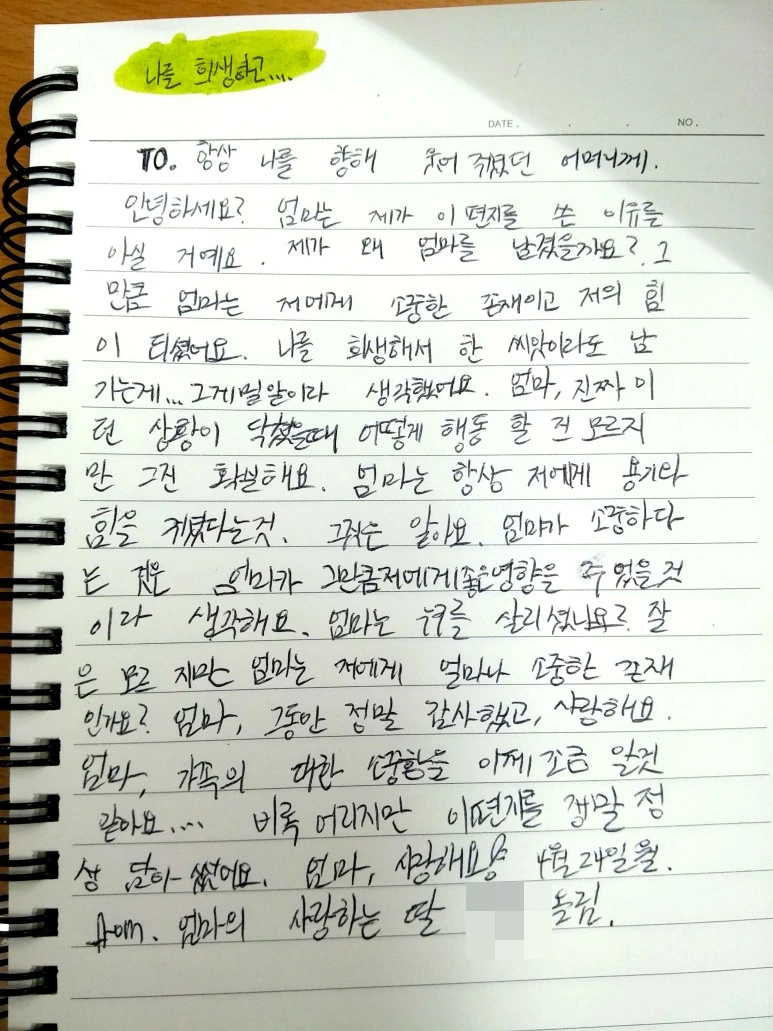 나를 희생하고....
DATE . . . NO.
TO. 항상 나를 향해 웃어 주셨던 어머니께.
안녕하세요? 엄마는 제가 이 편지를 쓴 이유를
아실 거예요. 제가 왜 엄마를 남겼을까요? 그
만큼 엄마는 저에게 소중한 존재이고 저의 힘
이 되셨어요. 나를 희생해서 한 씨앗이라도 남
기는게... 그게밀알이라 생각했어요. 엄마, 진짜 이
런 상황이 닥쳤을때 어떻게 행동 할 건 모르지
만 그건 확실해요. 엄마는 항상 저에게 용기와
힘을 주셨다는것. 그것은 알아요. 엄마가 소중하다
는 것은 엄마가 그만큼저에게좋은영향을 주었을것
이라 생각해요. 엄마는 누구를 살리셨나요? 잘
은 모르지만 엄마는 저에게 얼마나 소중한 존재
인가요? 엄마, 그동안 정말 감사했고, 사랑해요.
엄마, 가족의 대한 소중함을 이제 조금 알것
같아요.... 비록 어리지만 이편지를 정말 정
성 담아 썼어요. 엄마, 사랑해요 4월 24일 월.
from. 엄마의 사랑하는 딸 올림.